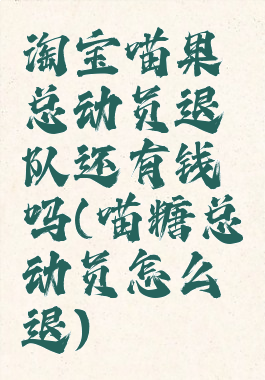 淘宝喵果
总动员退
队还有钱
吗(喵糖总
动员怎么
退)